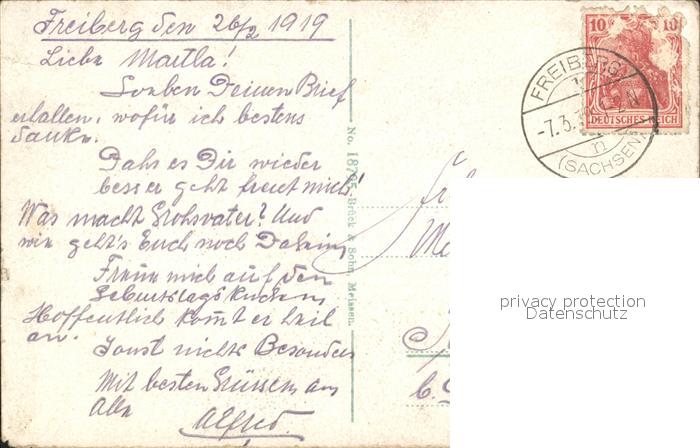 Freiberg den 26/2 1919
Liebe Martla!
Soeben Deinen Brief
erhalten, wofür ich bestens
danke.
Dahs es Dir wieder
besser geht freut mich!
Was macht Grohsvater? Und
wie geht's Euch noch Daheim
Freue mich auf den
Geburtstagskuchen
Hoffentlich komt er heil
an.
Sonst nichts Besonders
Mit besten Grüssen an
Alle
Alfred.
No. 18795 - Brück & Sohn Meissen.
10 10
DEUTSCHES REICH
FREIBERG
-7.3.
(SACHSEN)
privacy protection
Datenschutz